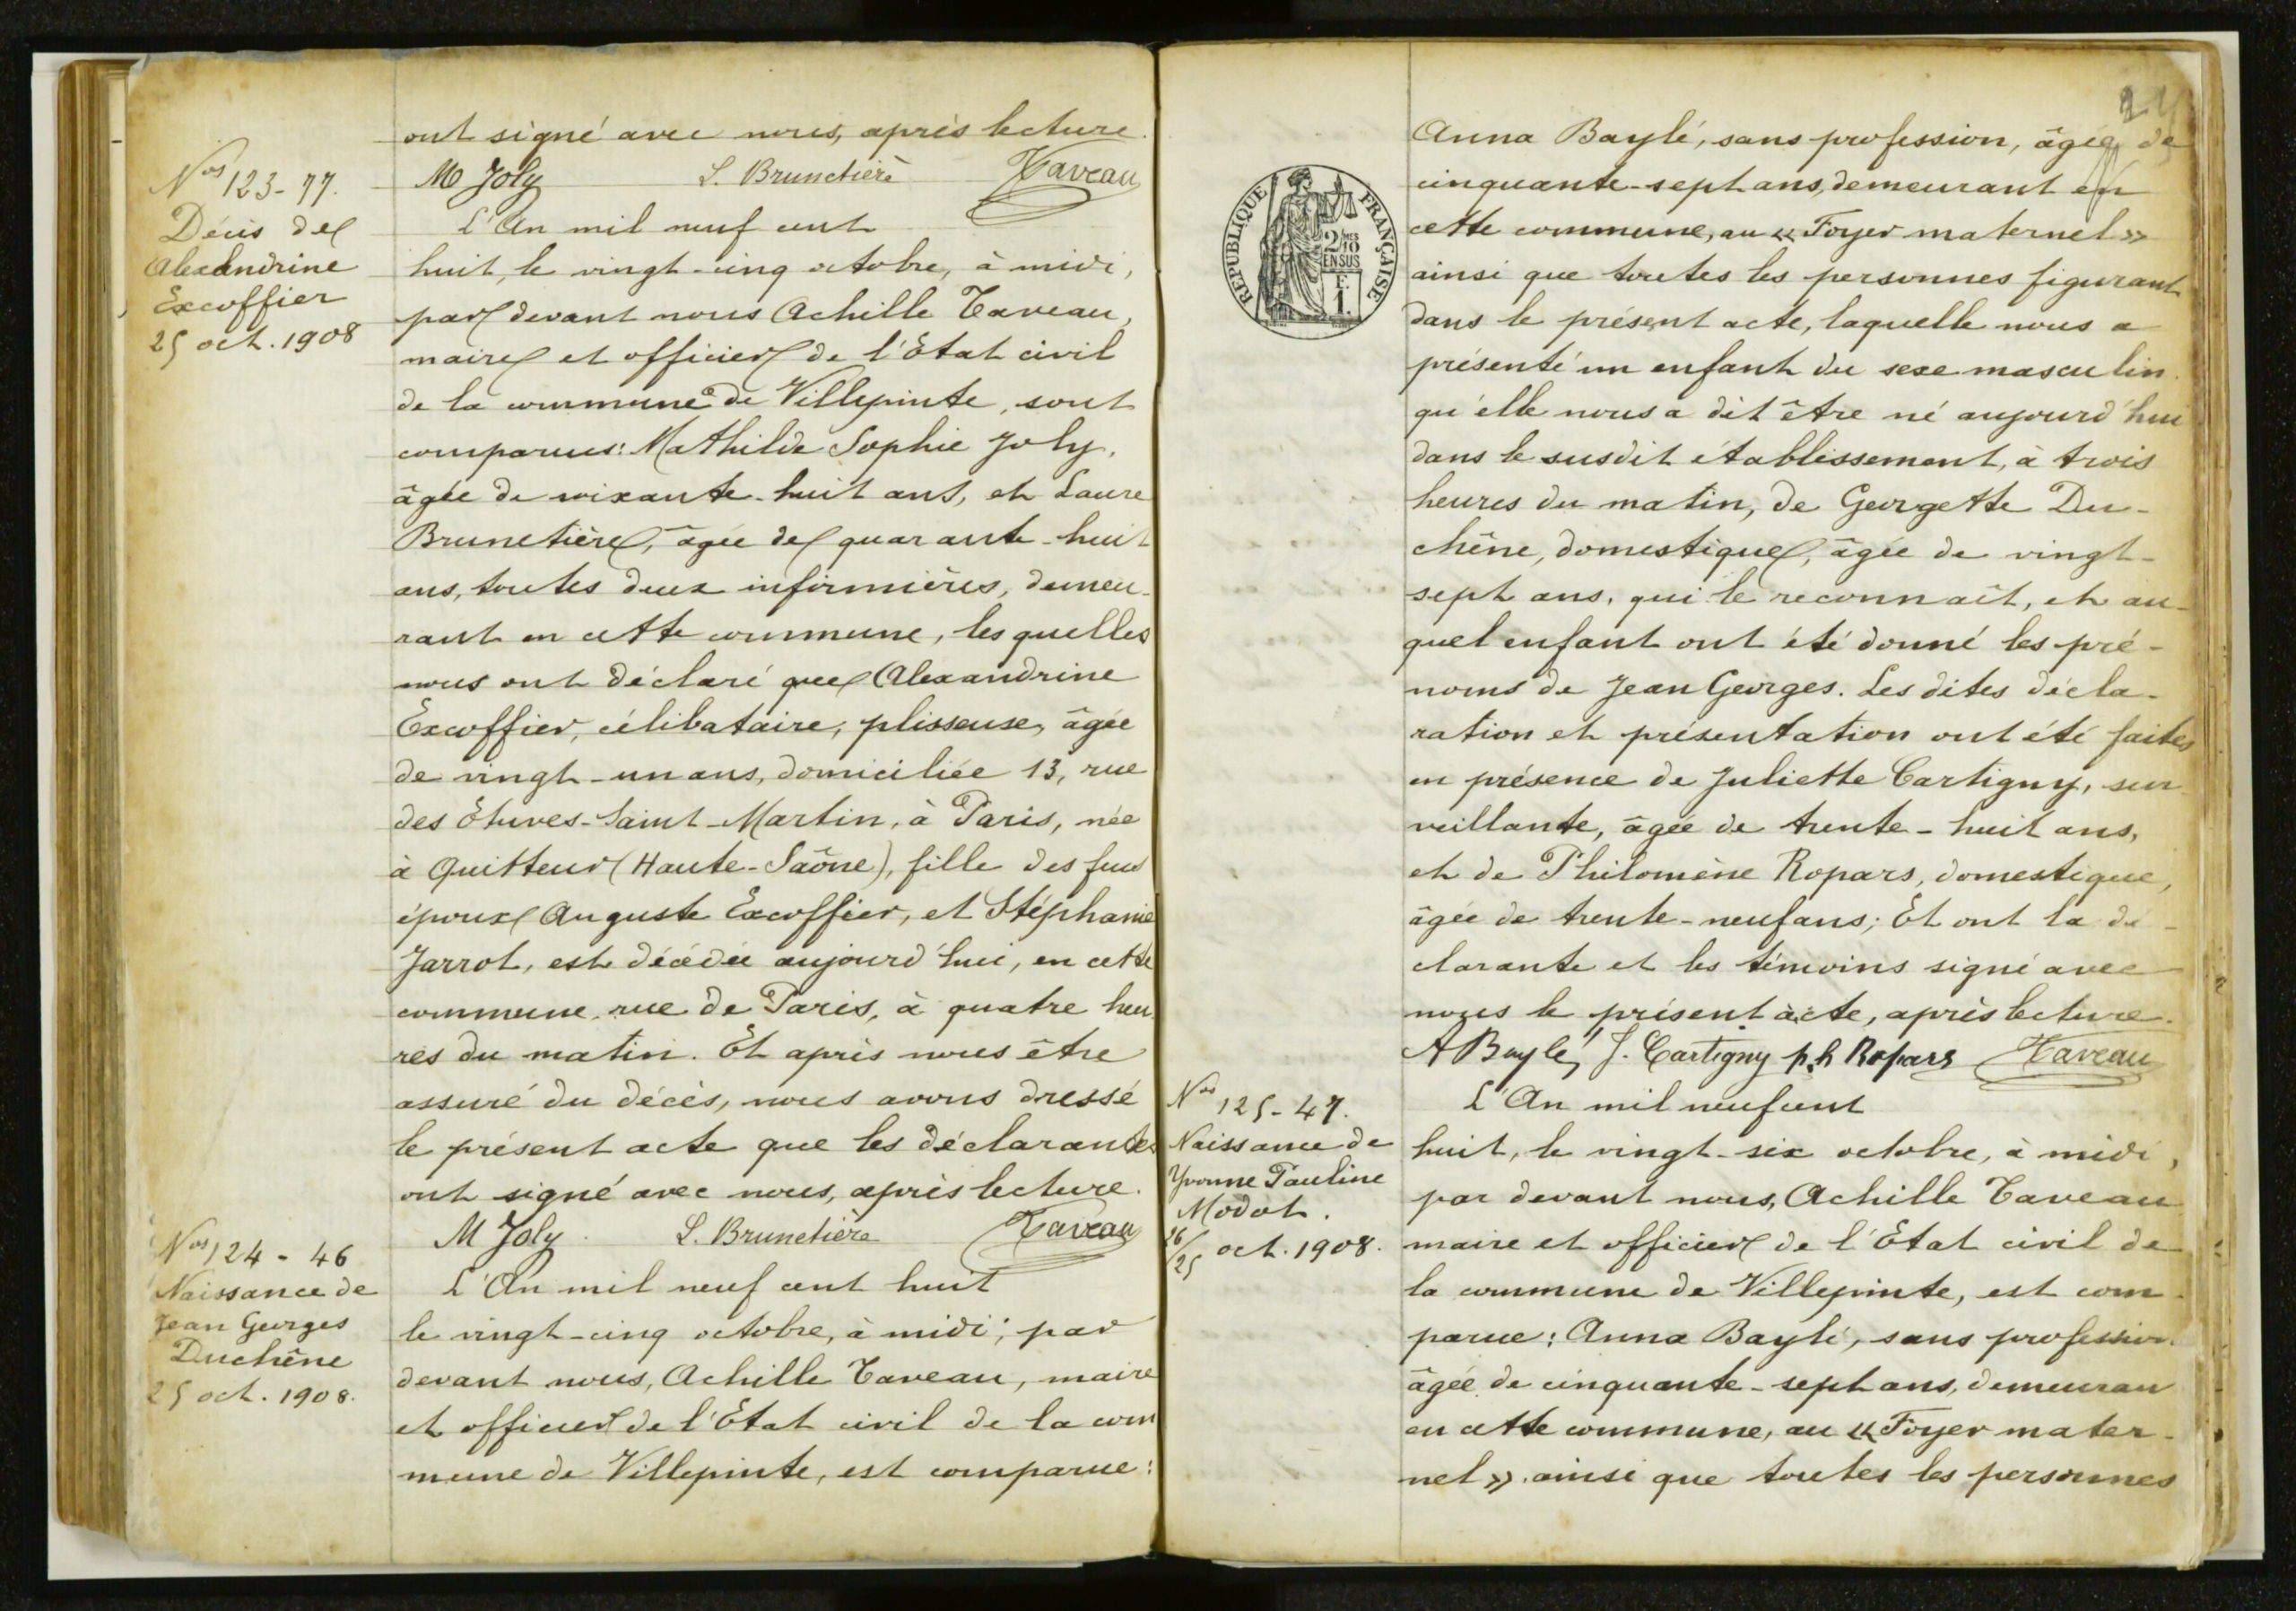 ont signé avec nous, après lecture.
M Joly L. Brunetière Taveau
Nos 123-77.
Décès de
Alexandrine
Excoffier
25 oct. 1908
L'An mil neuf cent
huit, le vingt-cinq octobre, à midi,
par devant nous Achille Taveau,
maire et officier de l'Etat civil
de la commune de Villepinte, sont
comparues: Mathilde Sophie Joly,
âgée de soixante-huit ans, et Laure
Brunetière, âgée de quarante-huit
ans, toutes deux infirmières, demeu-
rant en cette commune, lesquelles
nous ont déclaré que Alexandrine
Excoffier, célibataire, plisseuse, âgée
de vingt-un ans, domiciliée 13, rue
des Etuves-Saint-Martin, à Paris, née
à Quitteur (Haute-Saône), fille des feus
époux Auguste Excoffier, et Stéphanie
Jarrot, est décédée aujourd'hui, en cette
commune, rue de Paris, à quatre heu-
res du matin. Et après nous être
assuré du décès, nous avons dressé
le présent acte que les déclarantes
ont signé avec nous, après lecture.
M Joly. L. Brunetière Taveau
Nos 124-46
Naissance de
Jean Georges
Duchêne
25 oct. 1908.
L'An mil neuf cent huit
le vingt-cinq octobre, à midi, par
devant nous, Achille Taveau, maire
et officier de l'Etat civil de la com
mune de Villepinte, est comparue:
RÉPUBLIQUE FRANÇAISE
2/10
EN SUS
F.
1.
Anna Baylé, sans profession, âgée de
cinquante-sept ans, demeurant en
cette commune, au « Foyer maternel »
ainsi que toutes les personnes figurant
dans le présent acte, laquelle nous a
présenté un enfant du sexe masculin
qu'elle nous a dit être né aujourd'hui
dans le susdit établissement, à trois
heures du matin, de Georgette Du-
chêne, domestique, âgée de vingt-
sept ans, qui le reconnaît, et au-
quel enfant ont été donné les pré-
noms de Jean Georges. Les dites décla-
ration et présentation ont été faites
en présence de Juliette Cartigny, sur
veillante, âgée de trente-huit ans,
et de Philomène Ropars, domestique,
âgée de trente-neuf ans; Et ont la dé-
clarante et les témoins signé avec
nous le présent acte, après lecture.
A Baylé, J. Cartigny ph Ropars Taveau
Nos 125-47.
Naissance de
Yvonne Pauline
Modot.
26/25 oct. 1908.
L'An mil neuf cent
huit, le vingt-six octobre, à midi,
par devant nous, Achille Taveau
maire et officier de l'Etat civil de
la commune de Villepinte, est com-
parue: Anna Baylé, sans profession
âgée de cinquante-sept ans, demeuran
en cette commune, au « Foyer mater-
nel » ainsi que toutes les personnes